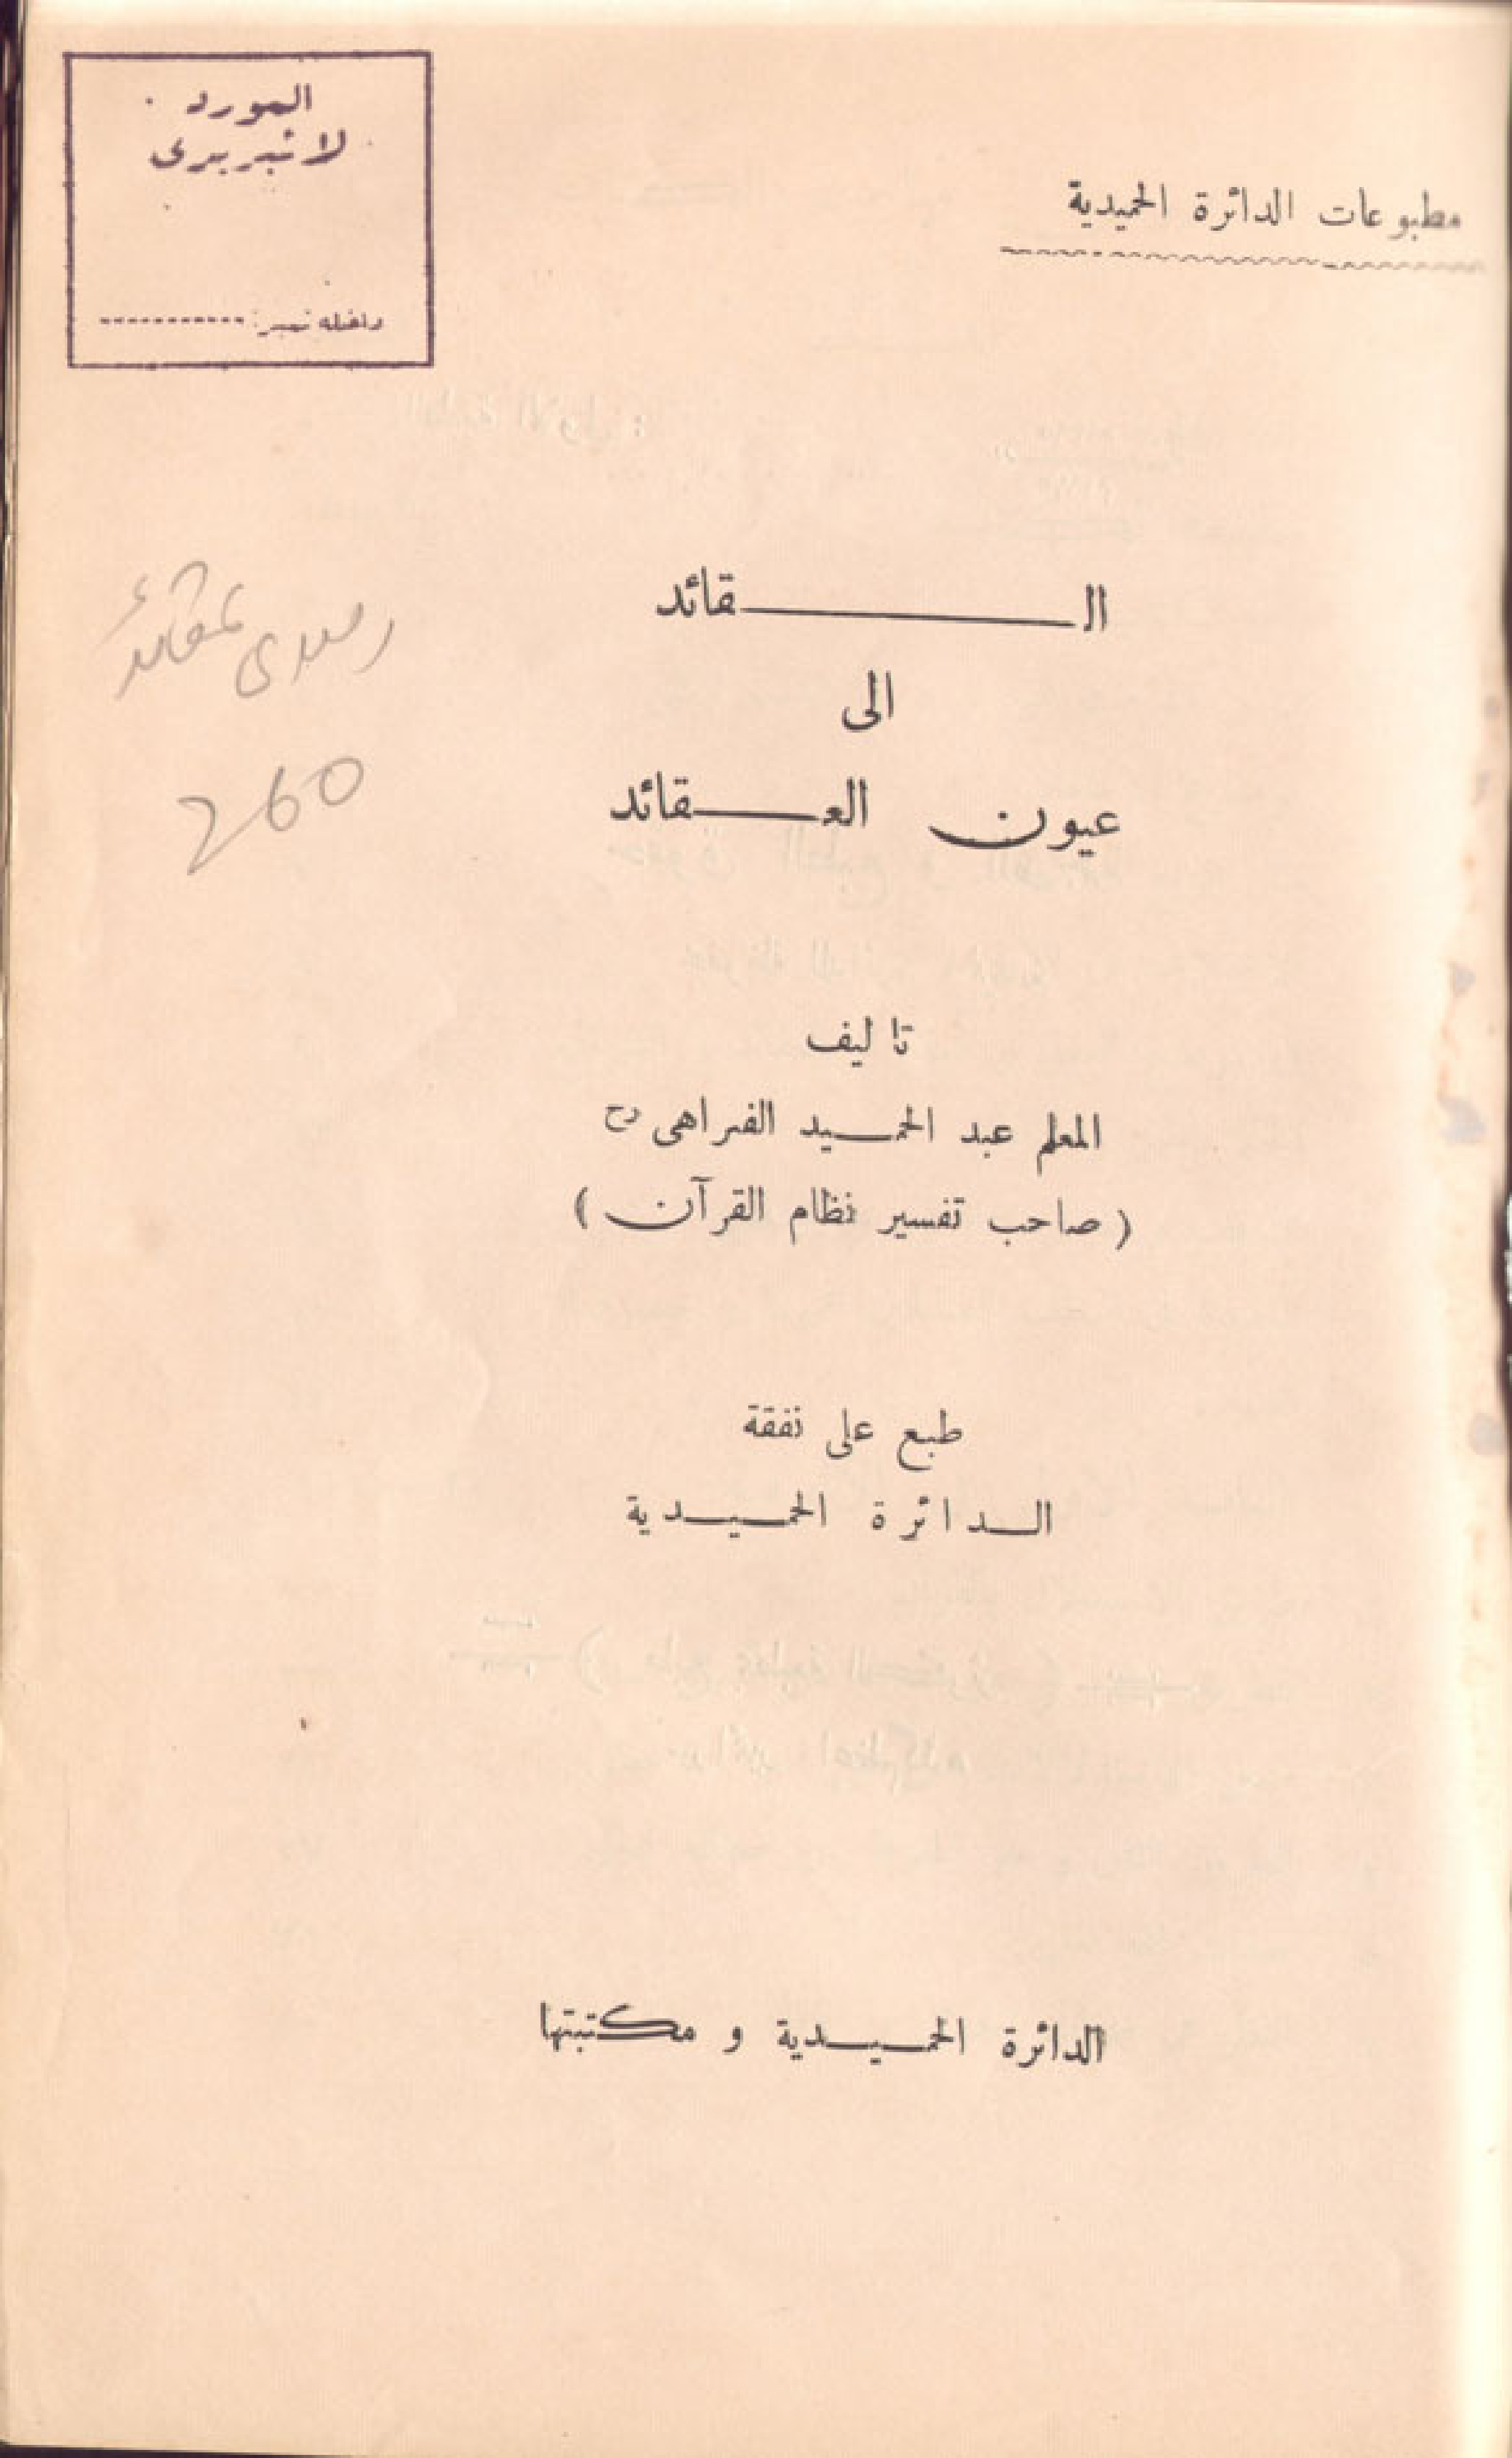 المورد
لائبریری
داخله نمبر:
مطبوعات الدائرة الحميدية
القائد
الى
عيون العقائد
تاليف
المعلم عبد الحميد الفراهى رح
( صاحب تفسير نظام القرآن )
طبع على نفقة
الدائرة الحميدية
الدائرة الحميدية و مكتبتها
عقائد
260